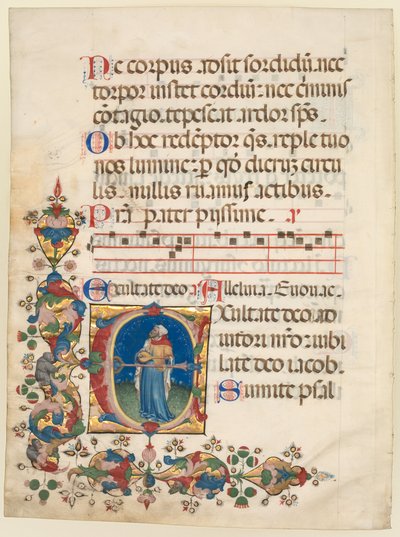 Ne corpus adsit sordidũ. nec
torpor instet cordiũ: nec crimĩs
cõtagio. tepescat ardor sp̃s.
Ob hoc redẽptor q̃s. reple tuo
nos lumine: p qđ dierũ circu
lis. nullis ruamus actibus.
Prã pater pijssime.
Exultate deo Alleluia. Euouae.
Exultate deo ad
iutori nr̃o: iubi
late deo iacob.
Sumite psal